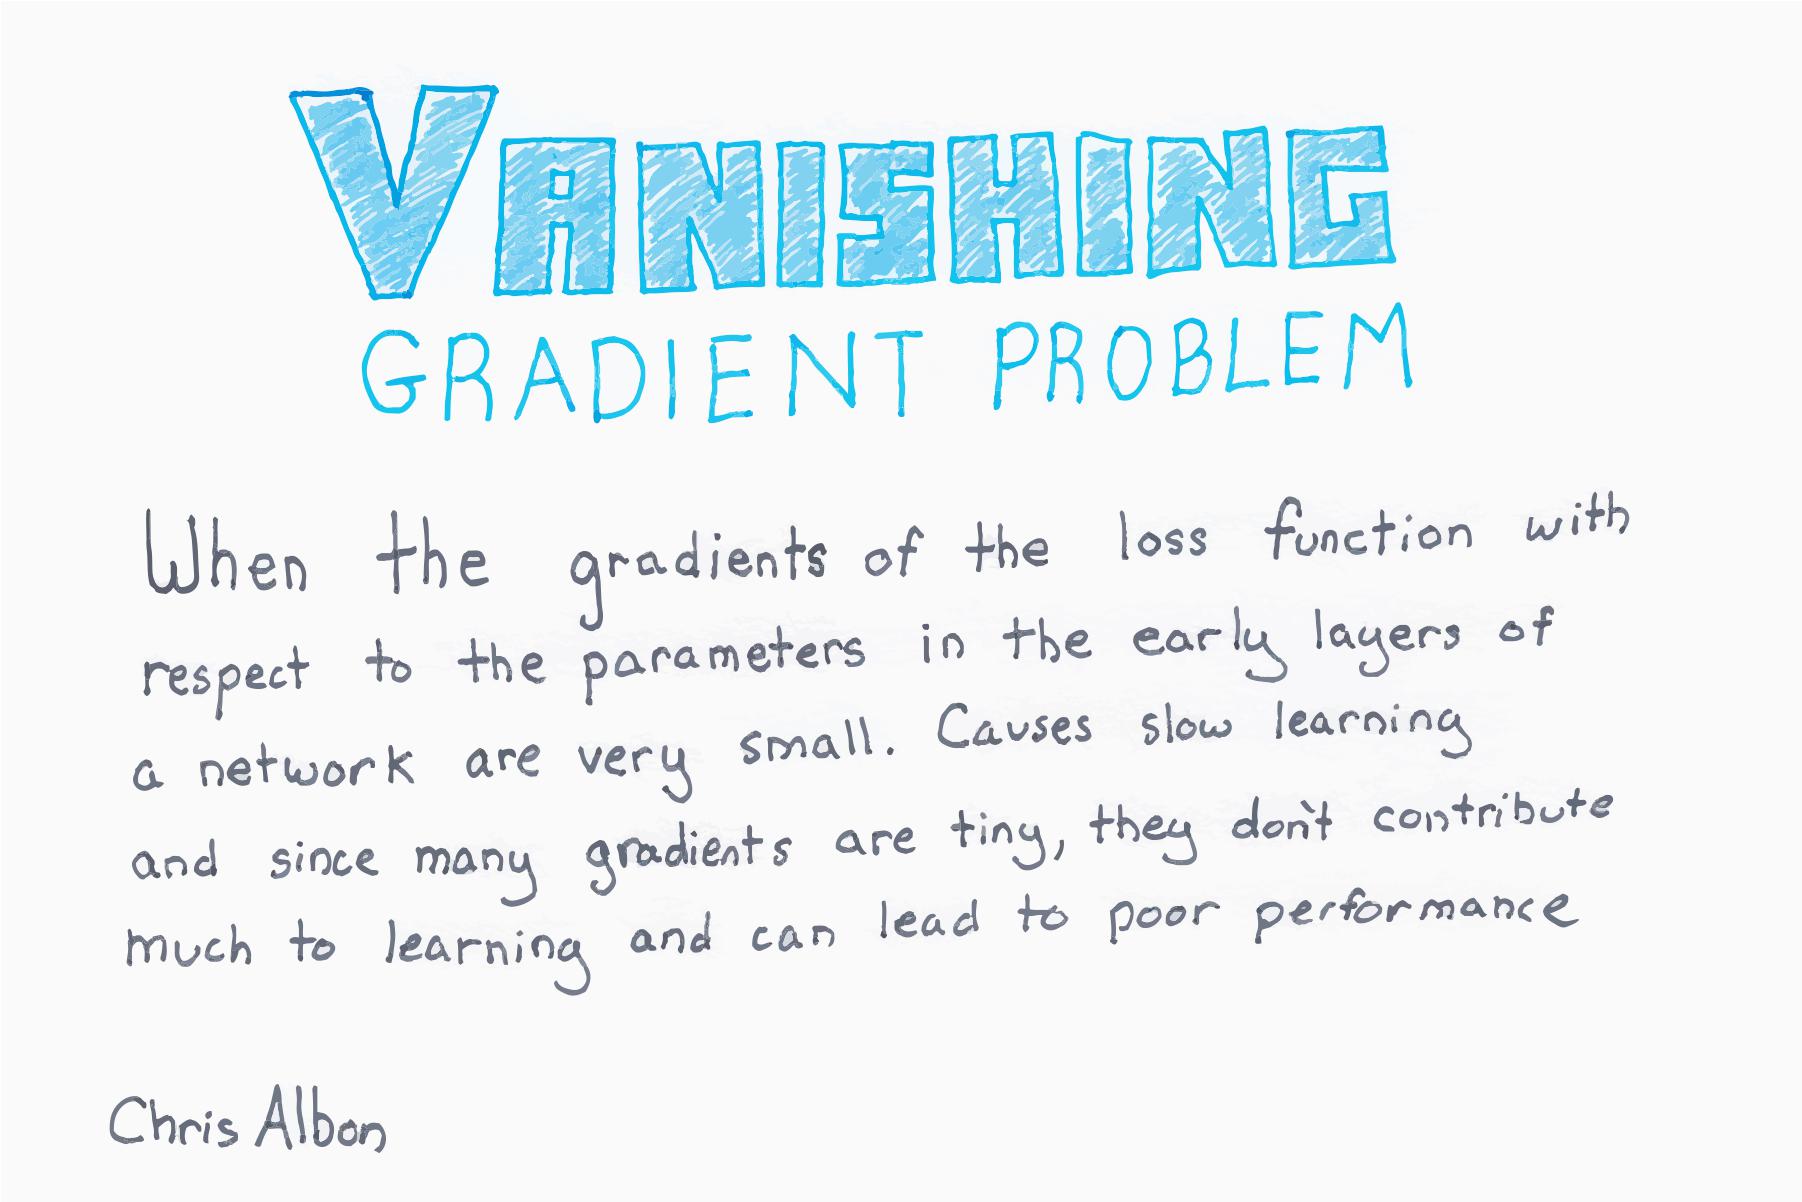 VANISHING
GRADIENT PROBLEM
When the gradients of the loss function with
respect to the parameters in the early layers of
a network are very small. Causes slow learning
and since many gradients are tiny, they don't contribute
much to learning and can lead to poor performance
Chris Albon